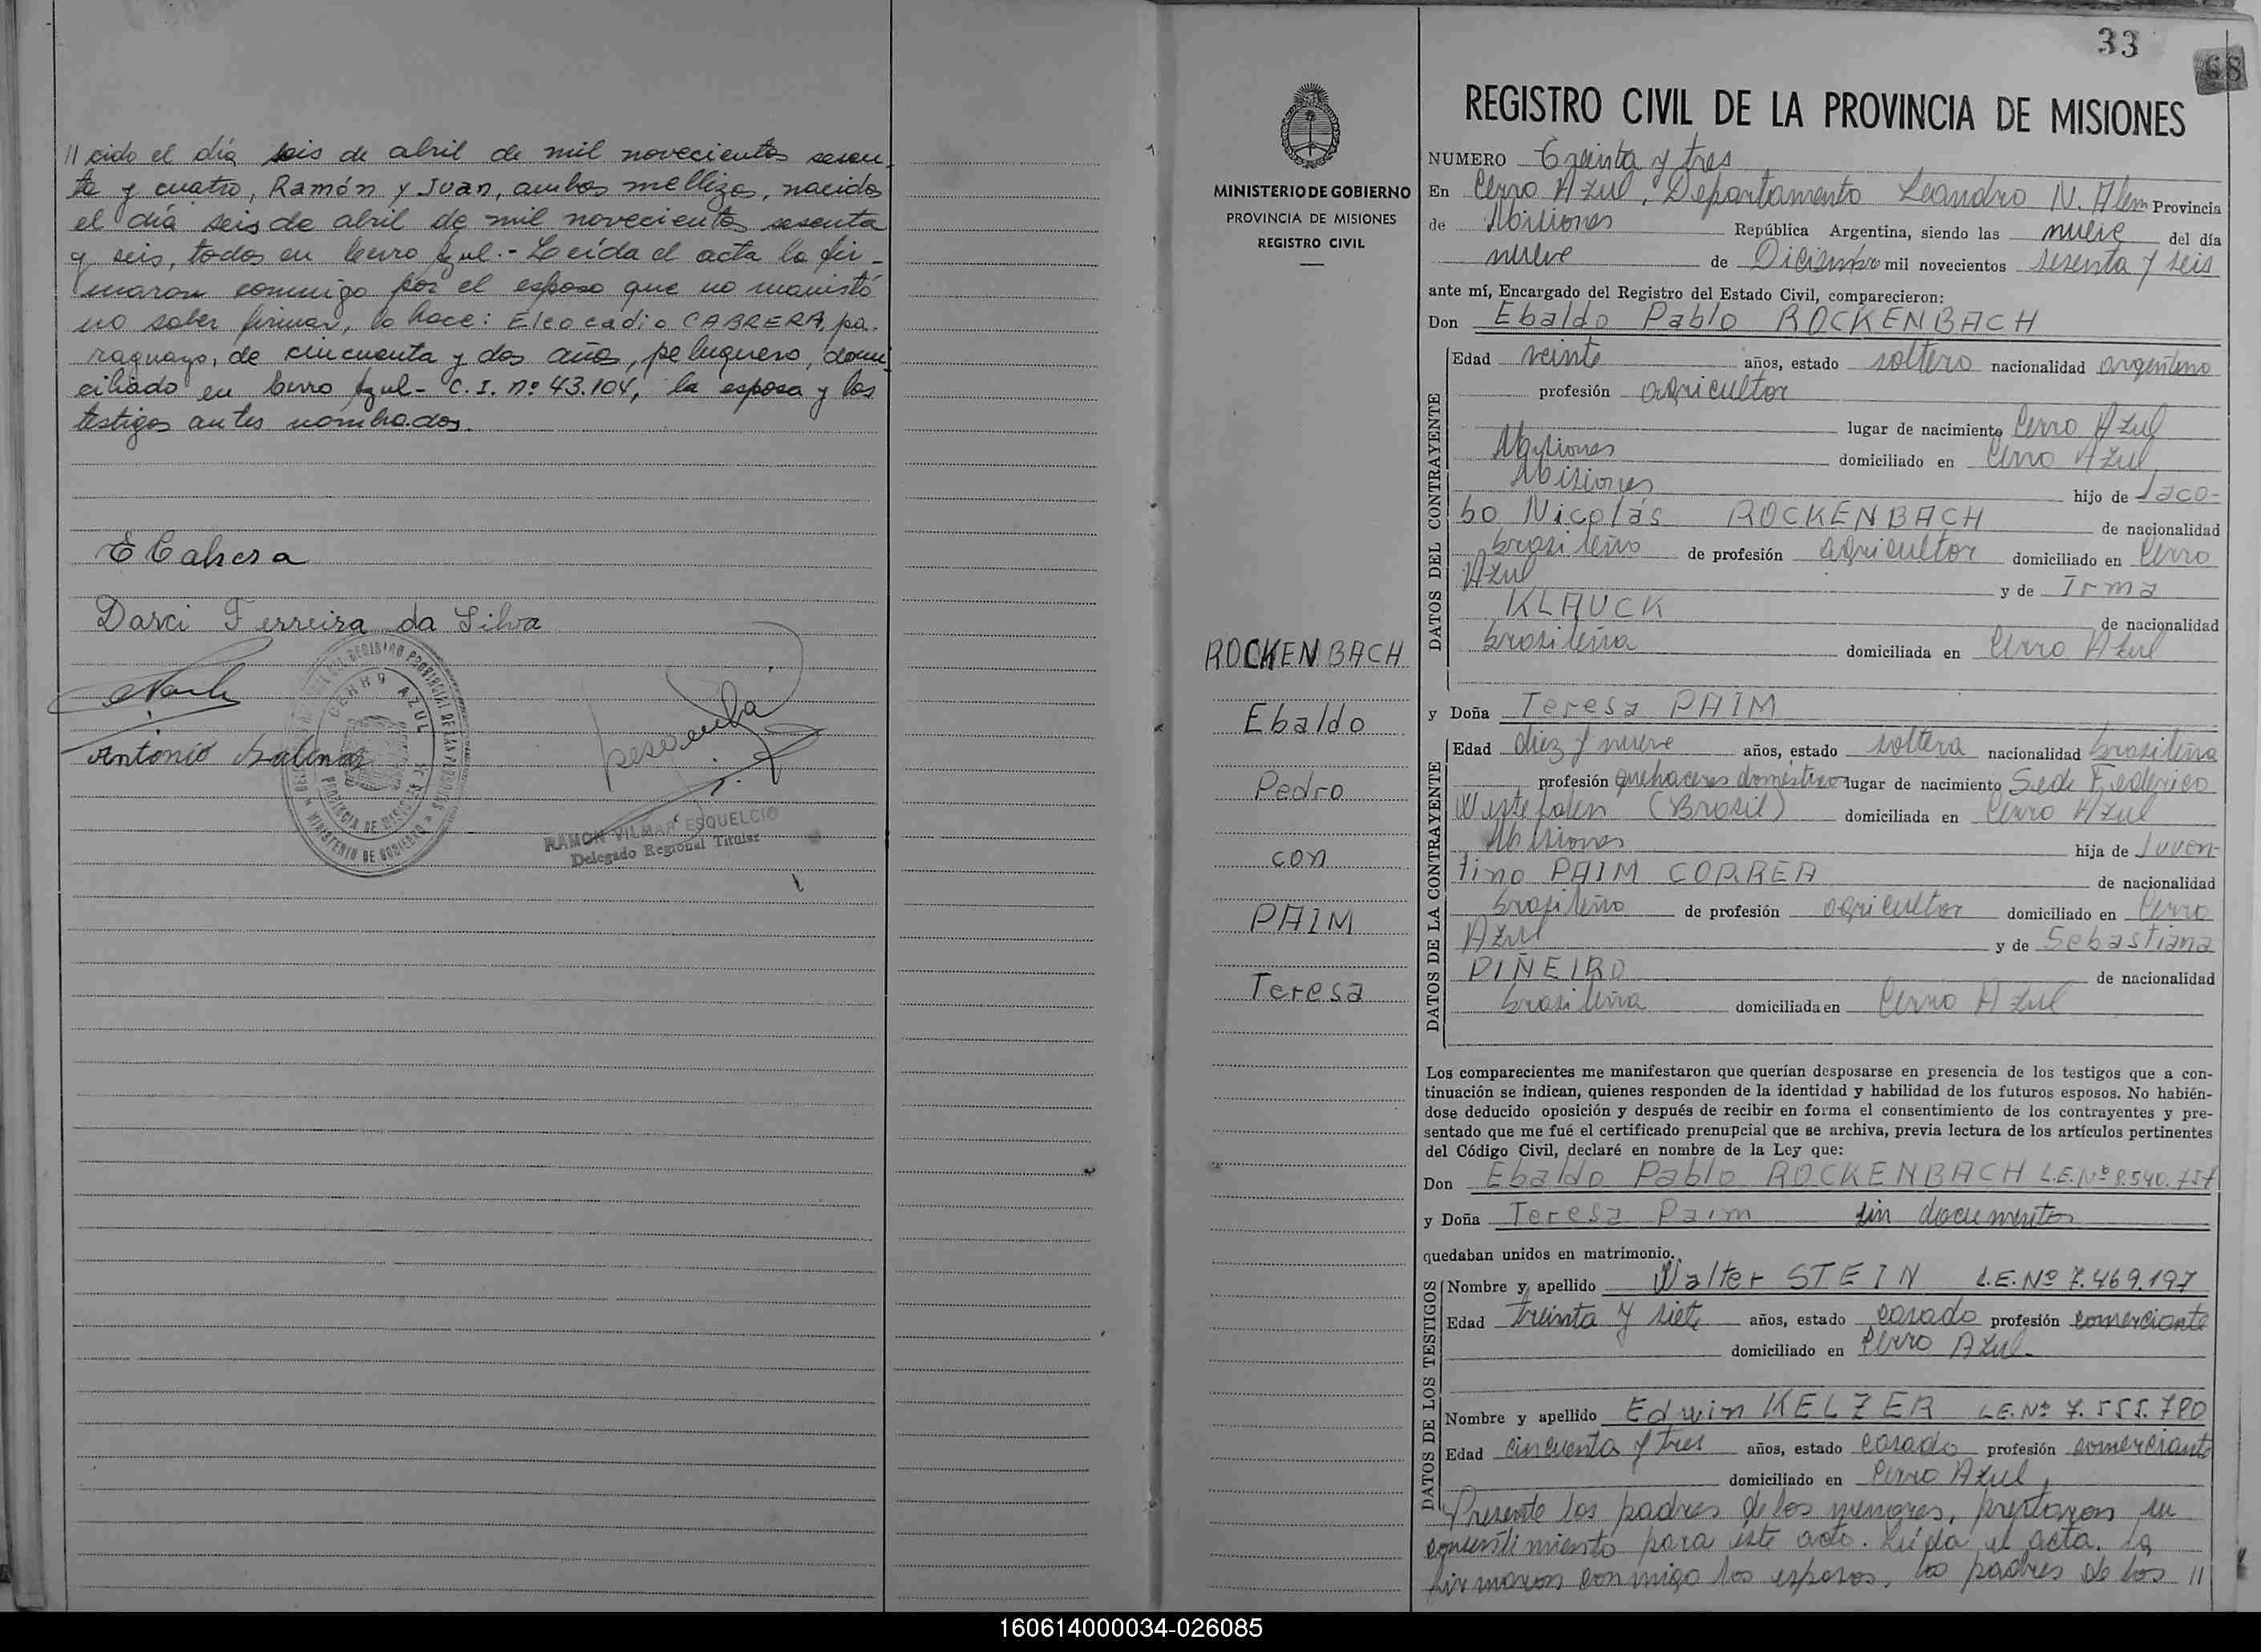 // cido el día seis de abril de mil novecientos sesen-
ta y cuatro, Ramón y Juan, ambos mellizos, nacidos
el día seis de abril de mil novecientos sesenta
y seis, todos en Cerro Azul.- Leída el acta la fir-
maron conmigo por el esposo que no manistó
no saber firmar, lo hace: Eleocadio CABRERA, pa-
raguayo, de cincuenta y dos años, peluquero, domi-
ciliado en Cerro Azul- C.I. nº 43.104, la esposa y los
testigos antes nombrados.
E Cabrera
Darci Ferreira da Silva
Antonio Salinas
CERRO AZUL
PROVINCIA DE MISIONES
MINISTERIO DE GOBIERNO
RAMON VILMAR ESQUELCIO
Delegado Regional Titular
33
68
MINISTERIO DE GOBIERNO
PROVINCIA DE MISIONES
REGISTRO CIVIL
ROCKENBACH
Ebaldo
Pedro
con
PAIM
Teresa
REGISTRO CIVIL DE LA PROVINCIA DE MISIONES
NUMERO Treinta y tres
En Cerro Azul, Departamento Leandro N. Alem Provincia
de Misiones República Argentina, siendo las nueve del día
nueve de Diciembre mil novecientos sesenta y seis
ante mí, Encargado del Registro del Estado Civil, comparecieron:
Don Ebaldo Pablo ROCKENBACH
DATOS DEL CONTRAYENTE
Edad veinte años, estado soltero nacionalidad argentino
profesión agricultor
lugar de nacimiento Cerro Azul
Misiones domiciliado en Cerro Azul
Misiones hijo de Jaco-
bo Nicolás ROCKENBACH de nacionalidad
brasileño de profesión agricultor domiciliado en Cerro
Azul y de Irma
KLAUCK de nacionalidad
brasileña domiciliada en Cerro Azul
y Doña Teresa PAIM
DATOS DE LA CONTRAYENTE
Edad diez y nueve años, estado soltera nacionalidad brasileña
profesión quehaceres domésticos lugar de nacimiento Sede Federico
(Brasil) domiciliada en Cerro Azul
Misiones hija de Juven-
tino PAIM CORREA de nacionalidad
brasileño de profesión agricultor domiciliado en Cerro
Azul y de Sebastiana
PIÑEIRO de nacionalidad
brasileña domiciliada en Cerro Azul
Los comparecientes me manifestaron que querían desposarse en presencia de los testigos que a con-
tinuación se indican, quienes responden de la identidad y habilidad de los futuros esposos. No habién-
dose deducido oposición y después de recibir en forma el consentimiento de los contrayentes y pre-
sentado que me fué el certificado prenupcial que se archiva, previa lectura de los artículos pertinentes
del Código Civil, declaré en nombre de la Ley que:
Don Ebaldo Pablo ROCKENBACH L.E.Nº
y Doña Teresa Paim sin documentos
quedaban unidos en matrimonio.
DATOS DE LOS TESTIGOS
Nombre y apellido Walter STEIN L.E.Nº 7.469.197
Edad treinta y siete años, estado casado profesión comerciante
domiciliado en Cerro Azul.
Nombre y apellido Edwin KELZER L.E.Nº
Edad cincuenta y tres años, estado casado profesión comerciante
domiciliado en Cerro Azul,
Presente los padres de los menores, prestaron su
consentimiento para éste acto. Leída el acta, la
firmaron conmigo los esposos, los padres de los //
160614000034-026085